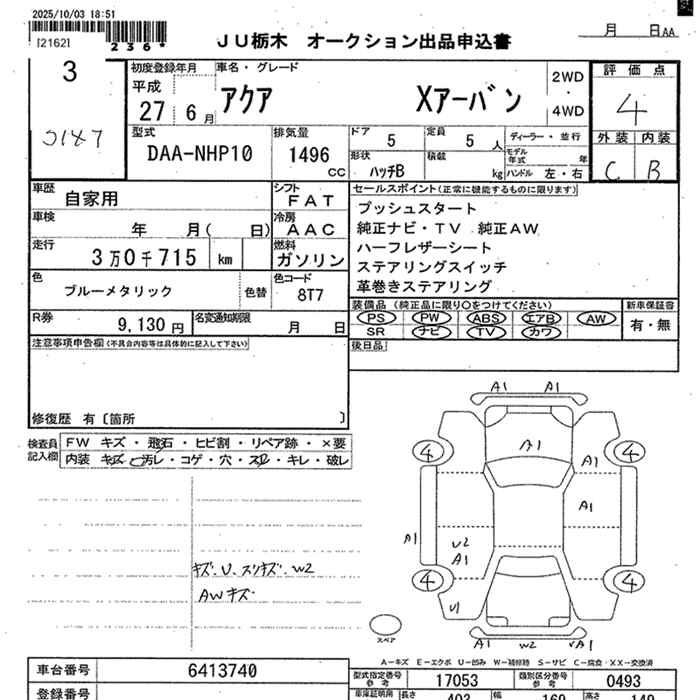 2025/10/03 18:51
[2162]
236*
JU栃木 オークション出品申込書
月 日AA
3
3187
初度登録年月
平成
27 6月
車名・グレード
アクア Xアーバン
2WD
・
4WD
評価点
4
外装 内装
C B
型式
DAA-NHP10
排気量
1496
CC
ドア
5
定員
5 人
形状
ハッチB
積載
kg
ディーラー・並行
モデル年式 年
ハンドル 左・右
車歴
自家用
シフト
FAT
車検
年 月( 日)
冷房
AAC
走行
3万0千715 km
燃料
ガソリン
色
ブルーメタリック
色替
色コード
8T7
R券
9,130円
名変通知期限
月 日
セールスポイント(正常に機能するものに限ります)
プッシュスタート
純正ナビ・TV 純正AW
ハーフレザーシート
ステアリングスイッチ
革巻きステアリング
装備品 (純正品に限り○をつけてください)
PS PW ABS エアB AW
SR ナビ TV カワ
新車保証書
有・無
後日品
注意事項申告欄(不具合内容等は具体的に記入して下さい)
修復歴 有〔箇所 〕
検査員記入欄
FW キズ・飛石・ヒビ割・リペア跡・×要
内装 キズ・汚レ・コゲ・穴・スレ・キレ・破レ
キズ.U.スリキズ.W2
AWキズ
A1 A1
A1
4 4
A1
A1
A1
U2
A1
4 4
U1
W2 A1
スペア
A-キズ E-エクボ U-凹み W-補修跡 S-サビ C-腐食・XX-交換済
車台番号
6413740
登録番号
型式指定番号
17053
類別区分番号
0493